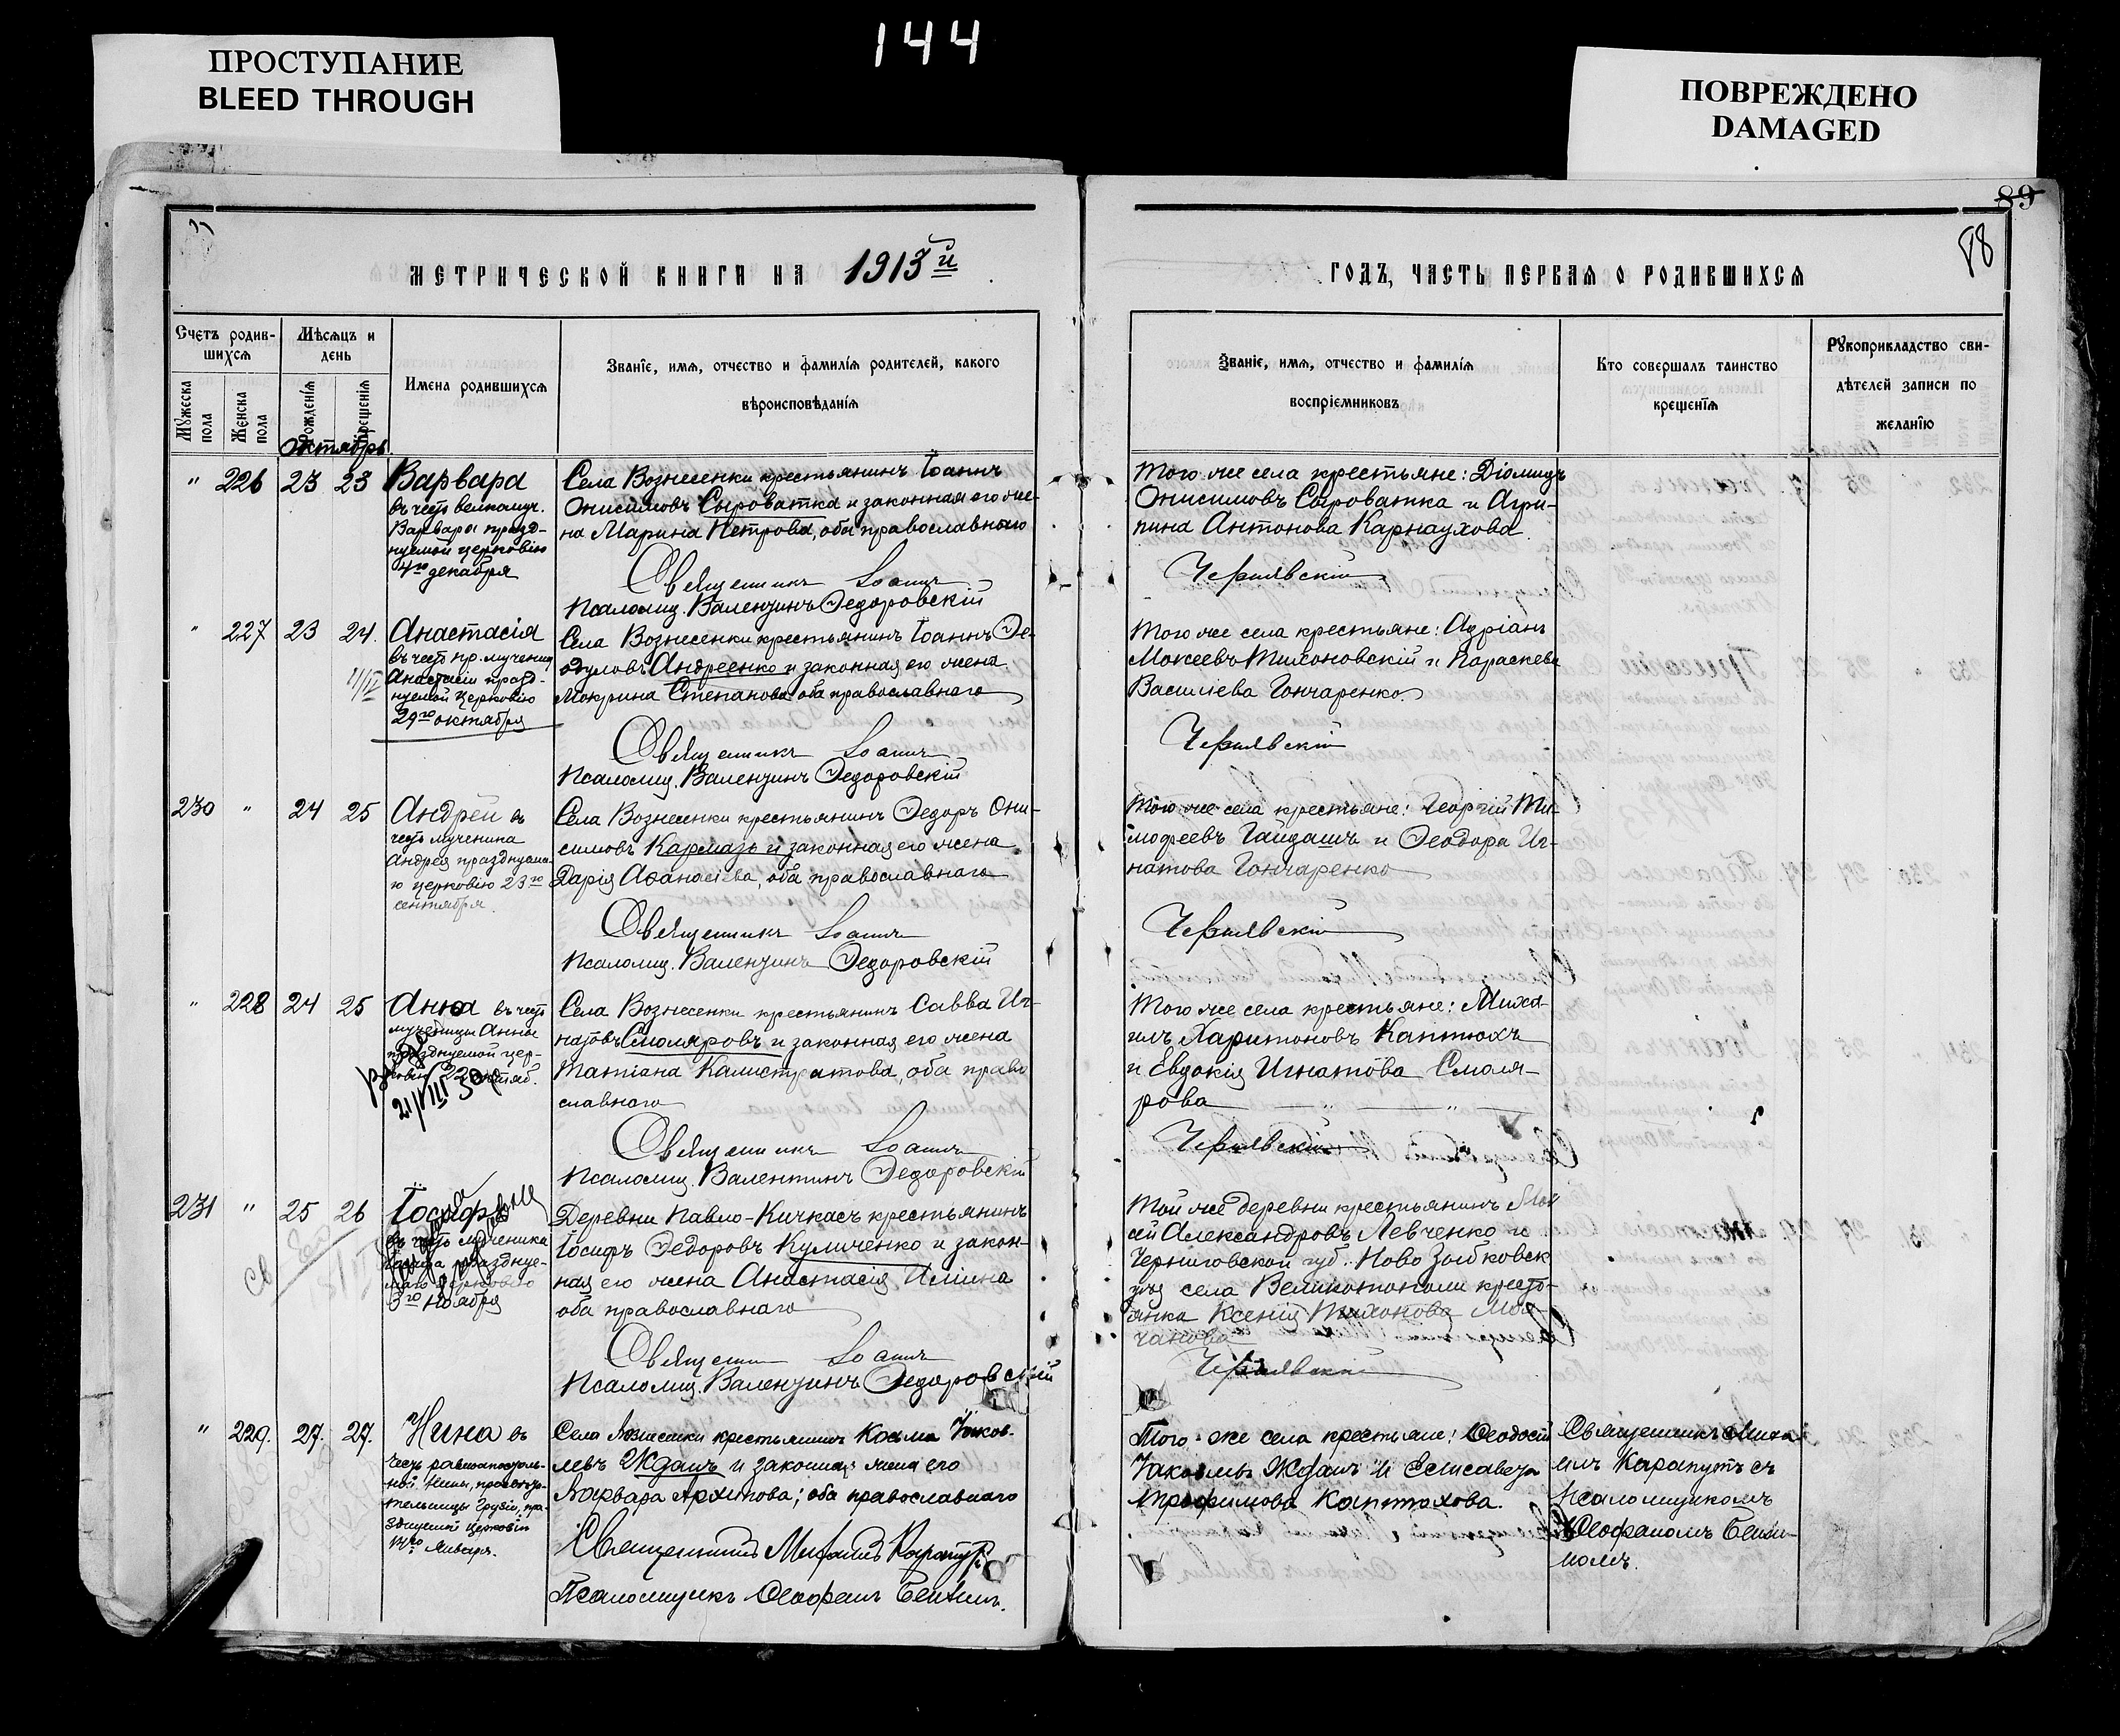 144
ПРОСТУПАНИЕ
BLEED THROUGH
ПОВРЕЖДЕНО
DAMAGED
89
88
МЕТРИЧЕСКОЙ КНИГИ НА 1913й
ГОДЪ, ЧАСТЬ ПЕРВАЯ О РОДИВШИХСЯ
Счетъ родив-
шихся
Мужеска пола
Женска пола
Мѣсяцъ и
день
Рожденія
Крещенія
Имена родившихся
Званіе, имя, отчество и фамилія родителей, какого
вѣроисповѣданія
Званіе, имя, отчество и фамилія
воспріемниковъ
Кто совершалъ таинство
крещенія
Рукоприкладство сви-
дѣтелей записи по
желанію
Октябрь
" 226 23 23 Варвара
въ честь великомуч.
Варвары празд-
нуемой церковію
4го декабря
Села Вознесенки крестьянинъ Іоаннъ
Онисимовъ Сыроватка и законная его же-
на Марина Петрова, оба православнаго
Священникъ Іоаннъ
Псаломщ. Валентинъ Федоровскій
Того же села крестьяне: Діомидъ
Онисимовъ Сыроватка и Агри-
пина Антонова Карнаухова.
Чернявскій
" 227 23 24. Анастасія
въ честь пр. мученицы
Анастасіи празд-
нуемой церковію
29го октября
Села Вознесенки крестьянинъ Іоаннъ Фе-
одуловъ Андреенко и законная его жена
Мокрина Степанова оба православнаго
Священникъ Іоаннъ
Псаломщ. Валентинъ Федоровскій
Того же села крестьяне: Адріанъ
Мокеевъ Тихоновскій и Параскева
Василіева Гончаренко.
Чернявскій
230 " 24 25 Андрей въ
честь мученика
Андрея празднуема-
го церковію 23го
сентября.
Села Вознесенки крестьянинъ Федоръ Они-
симовъ Кармазь и законная его жена
Дарія Афанасіева, оба православнаго
Священникъ Іоаннъ
Псаломщ. Валентинъ Федоровскій
Того же села крестьяне: Георгій Ти-
мофеевъ Гайдашъ и Феодора Иг-
натова Гончаренко
Чернявскій
" 228 24 25 Анна въ честь
мученицы Анны
празднуемой цер-
Села Вознесенки крестьянинъ Савва Иг-
натовъ Смоляровъ и законная его жена
Татіана Калистратова, оба право
славнаго
Священникъ Іоаннъ
Псаломщ. Валентинъ Федоровскій
Того же села крестьяне: Миха-
илъ Харитоновъ Каптюхъ
и Евдокія Игнатова Смоля-
рова
Чернявскій
231 " 25 26 Іосифъ
въ честь мученика
Іосифа празднуе-
маго церковію
3го ноября
Деревни Павло-Кичкасъ крестьянинъ
Іосифъ Федоровъ Куличенко и закон-
ная его жена Анастасія Иліина
оба православнаго
Священникъ Іоаннъ
Псаломщ. Валентинъ Федоровскій
Той же деревни крестьянинъ Мок
ей Александровъ Левченко и
Черниговской губ. Ново Зыбковск
уѣз села Великотополи кресть-
янка Ксенія Тихонова Мол-
чанова
Чернявскій
" 229. 27. 27. Нина въ
честь равноапостоль-
ной Нины, просвѣти-
тельницы Грузіи, пра-
зднуемой церковію
14го Января.
Села Вознесенки крестьянинъ Косьма Іаков-
левъ Жданъ и законная жена его
Варвара Архипова; оба православнаго
Священникъ Михаилъ Карапутъ
Псаломщикъ Феофанъ Бенжил.
Того же села крестьяне: Феодосій
Іаковлевъ Жданъ и Елисавета
Трофимова Каптюхова.
Священникъ Миха-
илъ Карапутъ съ
псаломщикомъ
Феофаномъ